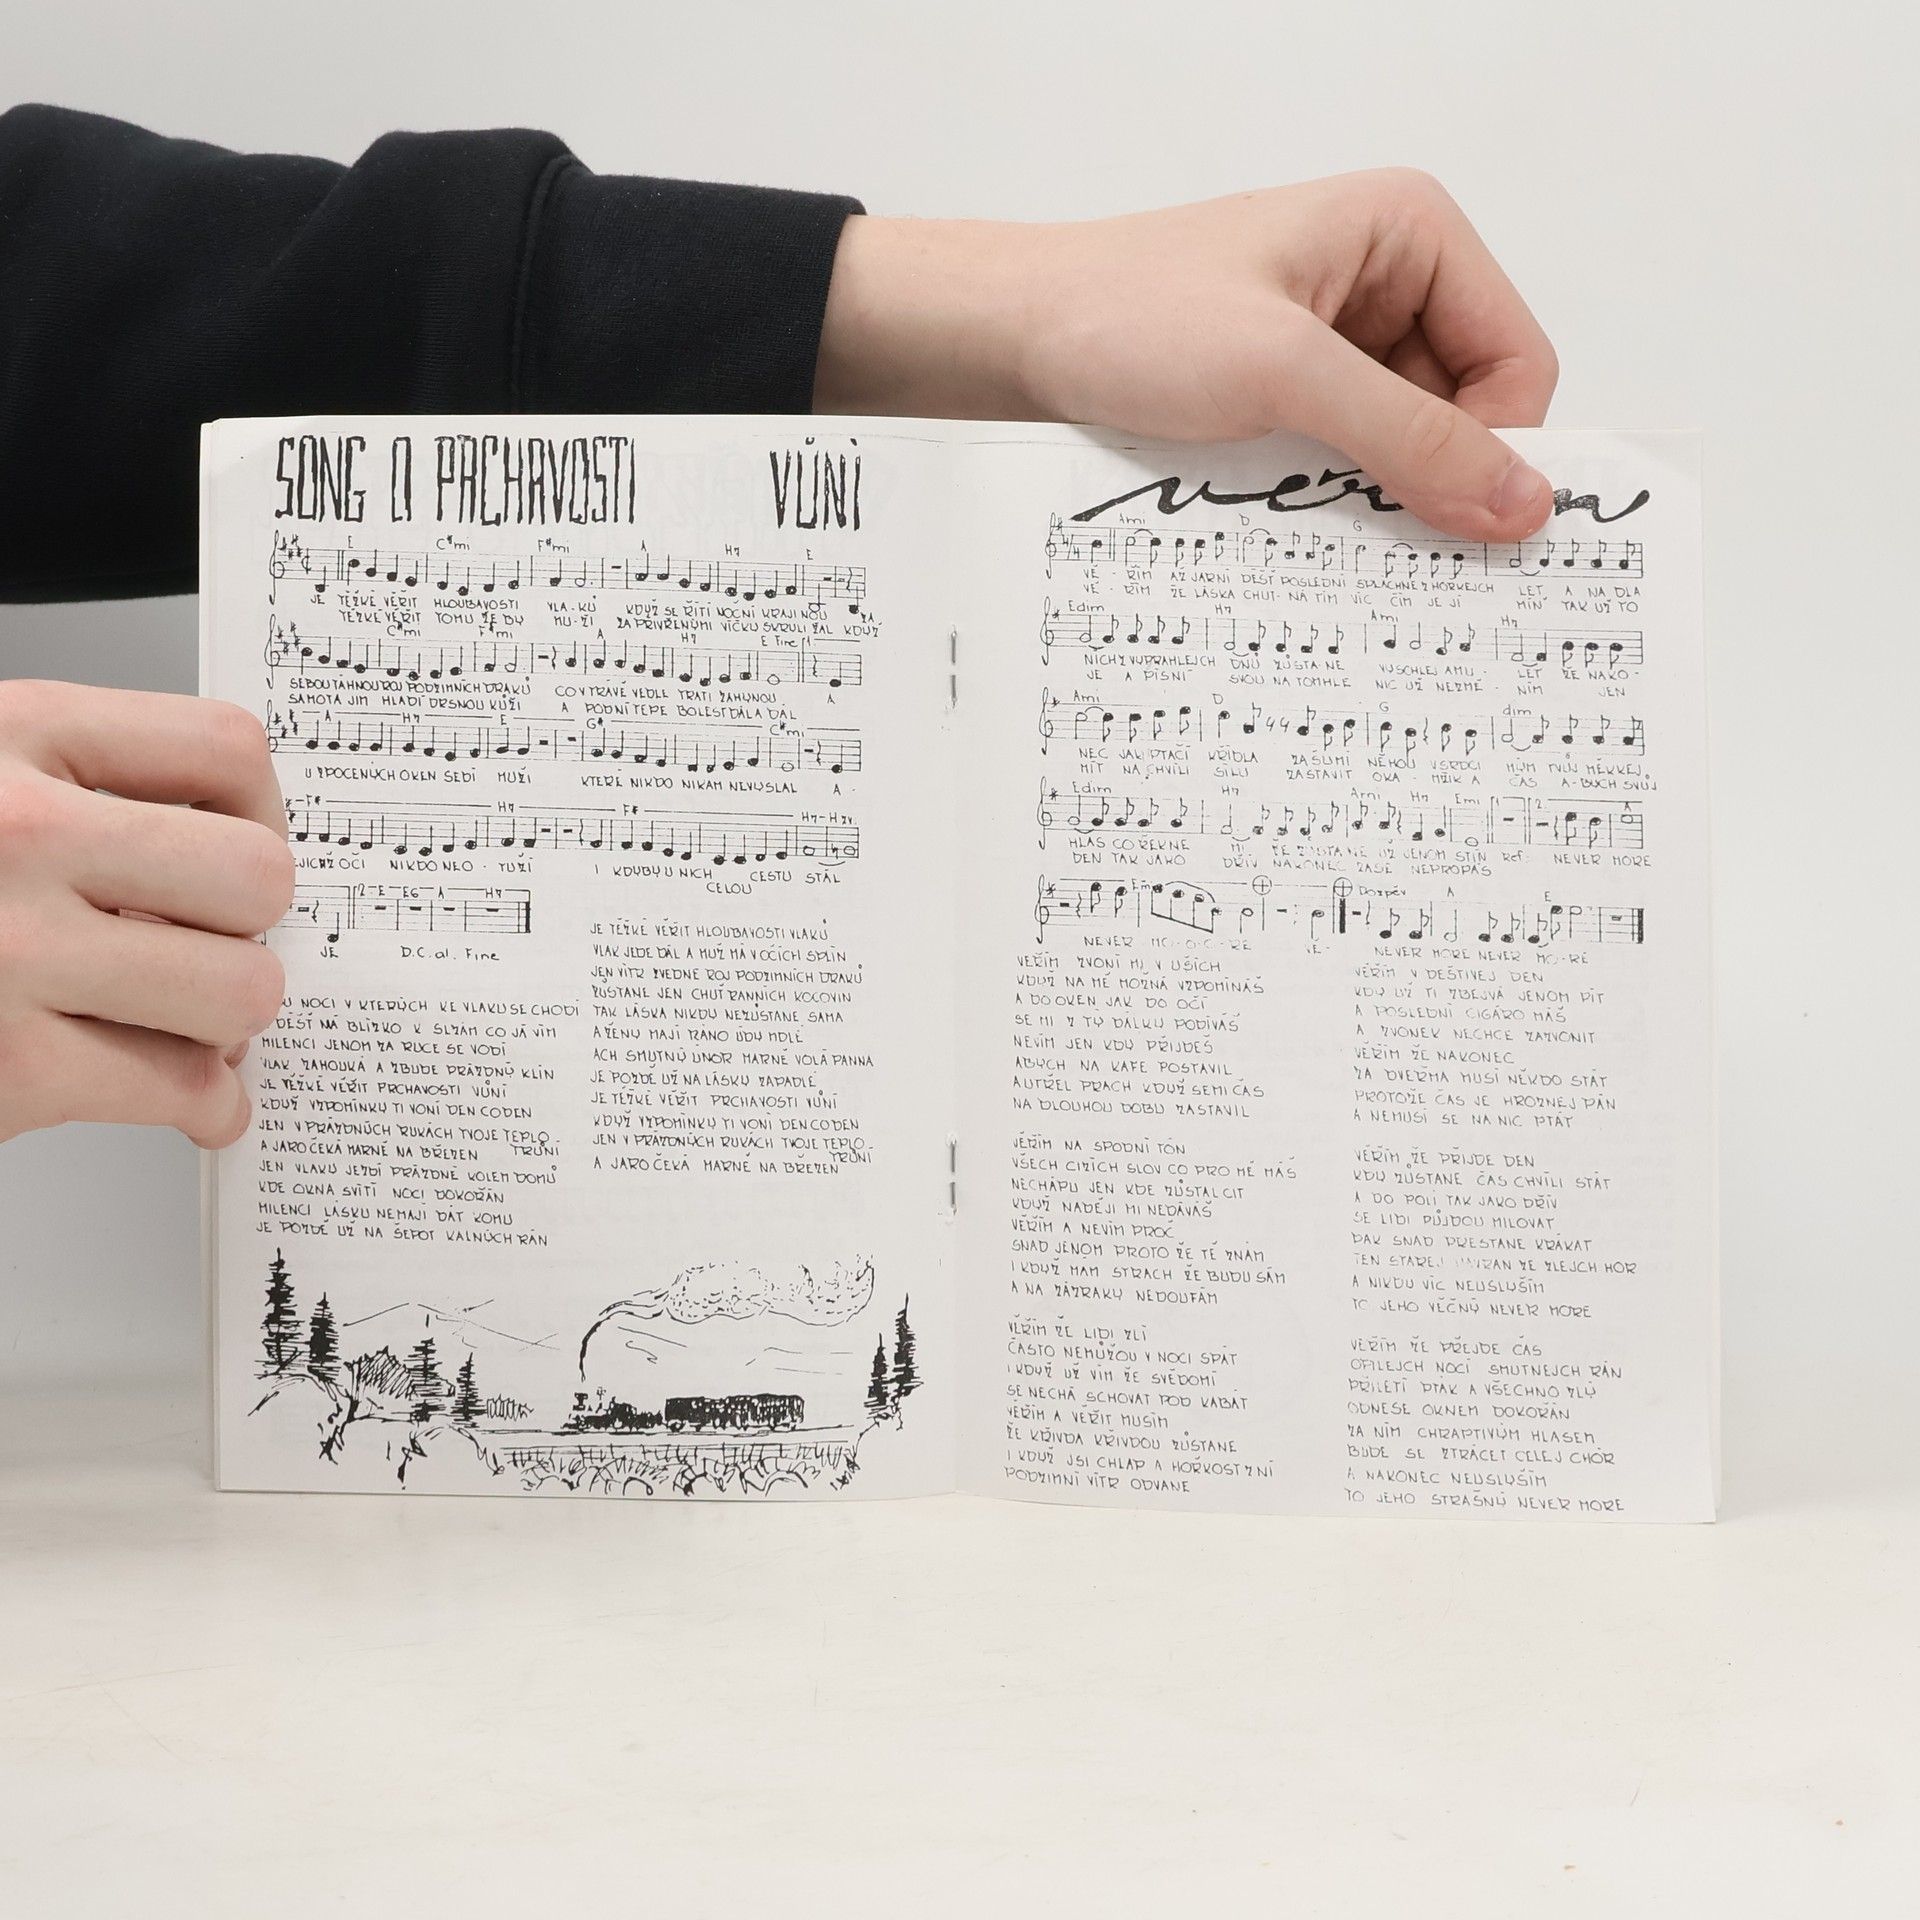 SONG O PRCHAVOSTI VŮNÍ
E C#mi F#mi A H7 E
JE TĚŽKÉ VĚŘIT HLOUBAVOSTI VLA-KŮ KDYŽ SE ŘÍTÍ NOČNÍ KRAJINOU ZA
TĚŽKÉ VĚŘIT TOMU ŽE BY MU-ŽI ZA PŘIVŘENÝMI VÍČKY SKRYLI ŽAL KDYŽ
C#mi F#mi A H7 E Fine 1.
SEBOU TÁHNOU ROJ PODZIMNÍCH DRAKŮ CO V TRÁVĚ VEDLE TRATI ZAHYNOU A
SAMOTA JIM HLADÍ DRSNOU KŮŽI A POD NÍ TEPE BOLEST DÁLA DÁL
A H7 E G# C#mi
U ZPOCENÝCH OKEN SEDÍ MUŽI KTERÉ NIKDO NIKAM NEVYSLAL A-
F# H7 F# H7-H zv.
JEJICHŽ OČI NIKDO NEO-TUŽÍ I KDYBY U NICH CESTU STÁL
CELOU
2. E E6 A H7
JE D.C. al. Fine
NOCI V KTERÝCH KE VLAKU SE CHODÍ
DÉŠŤ MÁ BLÍZKO K SLZÁM CO JÁ VÍM
MILENCI JENOM ZA RUCE SE VODÍ
VLAK ZAHOUKÁ A ZBUDE PRÁZDNÝ KLÍN
JE TĚŽKÉ VĚŘIT PRCHAVOSTI VŮNÍ
KDYŽ VZPOMÍNKY TI VONÍ DEN CO DEN
JEN V PRÁZDNÝCH RUKÁCH TVOJE TEPLO
TRŮNÍ
A JARO ČEKÁ MARNĚ NA BŘEZEN
JEN VLAKY JEZDÍ PRÁZDNÉ KOLEM DOMŮ
KDE OKNA SVÍTÍ NOCI DOKOŘÁN
MILENCI LÁSKU NEMAJÍ DÁT KOMU
JE POZDĚ UŽ NA ŠEPOT KALNÝCH RÁN
JE TĚŽKÉ VĚŘIT HLOUBAVOSTI VLAKŮ
VLAK JEDE DÁL A MUŽ MÁ V OČÍCH SPLÍN
JEN VÍTR ZVEDNE ROJ PODZIMNÍCH DRAKŮ
ZŮSTANE JEN CHUŤ RANNÍCH KOCOVIN
TAK LÁSKA NIKDY NEZŮSTANE SAMA
A ŽENY MAJÍ RÁNO ÚDY MDLÉ
ACH SMUTNÝ ÚNOR MARNĚ VOLÁ PANNA
JE POZDĚ UŽ NA LÁSKY ZAPADLÉ
JE TĚŽKÉ VĚŘIT PRCHAVOSTI VŮNÍ
KDYŽ VZPOMÍNKY TI VONÍ DEN CO DEN
JEN V PRÁZDNÝCH RUKÁCH TVOJE TEPLO
TRŮNÍ
A JARO ČEKÁ MARNĚ NA BŘEZEN
Ami D G
VĚ-ŘÍM AŽ JARNÍ DÉŠŤ POSLEDNÍ SPLÁCHNE Z HORKEJCH LET A NA DLA
VĚ-ŘÍM ŽE LÁSKA CHUT-NÁ TÍM VÍC ČÍM JE JÍ MÍŇ TAK UŽ TO
Edim H7 Ami H7
NÍCH VYPRAHLEJCH DNŮ ZŮSTA-NE VYSCHLEJ AMU-LET ŽE NAKO-
JE A PÍSNÍ SVOU NA TOMHLE NIC UŽ NEZMĚ-NÍM JEN
Ami D G dim
NEC JAK PTAČÍ KŘÍDLA ZAŠUMÍ NĚMOU V SRDCI MÝM TVŮJ MĚKKEJ
MÍT NA CHVÍLI SÍLU ZASTAVIT OKA-MŽIK A ČAS A-BYCH SVŮJ
Edim H7 Ami H7 Emi 1. 2. A
HLAS CO ŘEKNE MI ŽE ZŮSTA NE UŽ JENOM STÍN Ref: NEVER MORE
DEN TAK JAKO DŘÍV NAKONEC ZASE NEPROPÁS
Emi Dozpěv A E
NEVER MO-O-O-RE VĚ- NEVER MORE NEVER MO-RE
VĚŘÍM ZVONÍ MI V UŠÍCH
KDYŽ NA MĚ MOŽNÁ VZPOMÍNÁŠ
A DO OKEN JAK DO OČÍ
SE MI Z TÝ DÁLKY PODÍVÁŠ
NEVÍM JEN KDY PŘIJDEŠ
ABYCH NA KAFE POSTAVIL
A UTŘEL PRACH KDYŽ SEMI ČAS
NA DLOUHOU DOBU ZASTAVIL
VĚŘÍM NA SPODNÍ TÓN
VŠECH CIZÍCH SLOV CO PRO MĚ MÁŠ
NECHÁPU JEN KDE ZŮSTAL CIT
KDYŽ NADĚJI MI NEDÁVÁŠ
VĚŘÍM A NEVÍM PROČ
SNAD JENOM PROTO ŽE TĚ ZNÁM
I KDYŽ MÁM STRACH ŽE BUDU SÁM
A NA ZÁZRAKY NEDOUFÁM
VĚŘÍM ŽE LIDI ZLÍ
ČASTO NEMŮŽOU V NOCI SPÁT
I KDYŽ UŽ VÍM ŽE SVĚDOMÍ
SE NECHÁ SCHOVAT POD KABÁT
VĚŘÍM A VĚŘIT MUSÍM
ŽE KŘIVDA KŘIVDOU ZŮSTANE
I KDYŽ JSI CHLAP A HOŘKOST ZNÍ
PODZIMNÍ VÍTR ODVANE
VĚŘÍM V DEŠTIVEJ DEN
KDY UŽ TI ZBEJVÁ JENOM PÍT
A POSLEDNÍ CIGÁRO MÁŠ
A ZVONEK NECHCE ZAZVONIT
VĚŘÍM ŽE NAKONEC
ZA DVEŘMA MUSÍ NĚKDO STÁT
PROTOŽE ČAS JE HROZNEJ PÁN
A NEMUSÍ SE NA NIC PTÁT
VĚŘÍM ŽE PŘIJDE DEN
KDY ZŮSTANE ČAS CHVÍLI STÁT
A DO POLÍ TAK JAKO DŘÍV
SE LIDI PŮJDOU MILOVAT
PAK SNAD PŘESTANE KRÁKAT
TEN STAREJ HAVRAN ZE ZLEJCH HOR
A NIKDY VÍC NEUSLYŠÍM
TO JEHO VĚČNÝ NEVER MORE
VĚŘÍM ŽE PŘEJDE ČAS
OPILEJCH NOCÍ SMUTNEJCH RÁN
PŘILETÍ PTÁK A VŠECHNO ZLÝ
ODNESE OKNEM DOKOŘÁN
ZA NÍM CHRAPTIVÝM HLASEM
BUDE SE ZTRÁCET CELEJ CHÓR
A NAKONEC NEUSLYŠÍM
TO JEHO STRAŠNÝ NEVER MORE